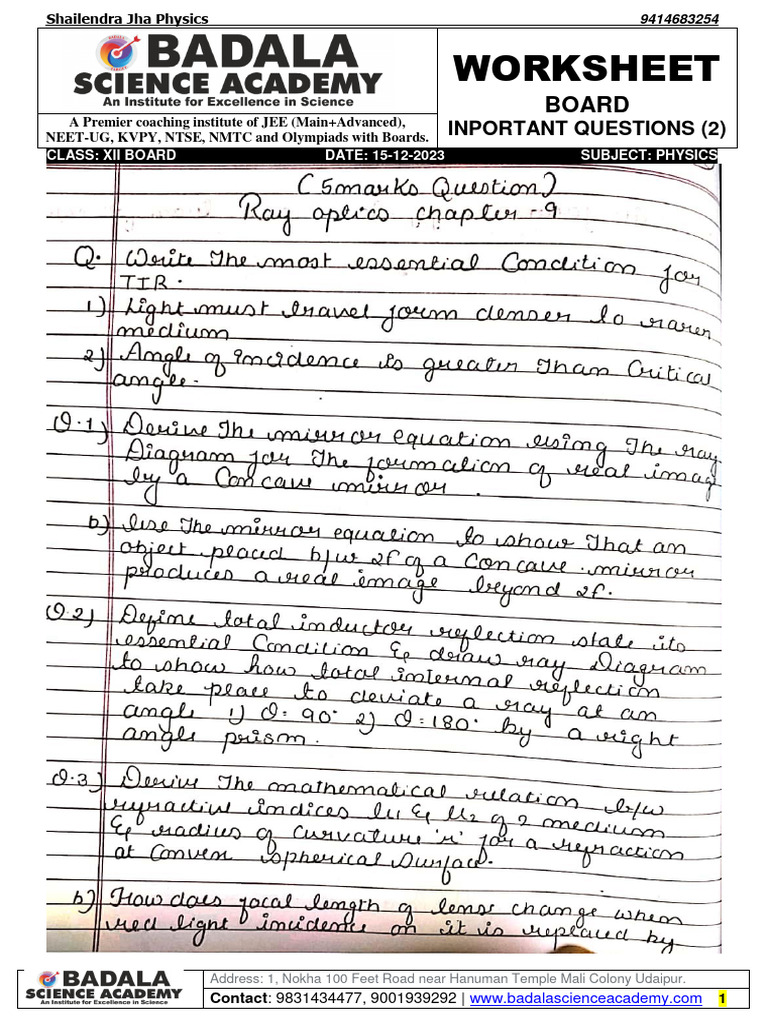 Shailendra Jha Physics 9414683254
BADALA
SCIENCE ACADEMY
An Institute for Excellence in Science
A Premier coaching institute of JEE (Main+Advanced),
NEET-UG, KVPY, NTSE, NMTC and Olympiads with Boards.
WORKSHEET
BOARD
INPORTANT QUESTIONS (2)
CLASS: XII BOARD DATE: 15-12-2023 SUBJECT: PHYSICS
(5marks Question)
Ray optics chapter-9
Q. Write The most essential Condition for
TIR.
1) Light must travel form denser to rarer
medium
2) Angle of incidence is greater Than Critical
angle.
Q.1) Derive The mirror equation using The ray
Diagram for The formation of real imag
by a Concave mirror.
b) Use The mirror equation to show That an
object placed b/w 2f of a Concave mirror
produces a real image beyond 2f.
Q.2) Define total inductor reflection state its
essential Condition & draw ray Diagram
to show how total internal reflection
take place to deviate a ray at an
angle 1) θ=90° 2) θ=180° by a right
angle prism.
Q.3) Derive The mathematical relation b/w
refractive indices μ1 & μ2 of 2 medium
& radius of curvature 'r' for a refraction
at Convex spherical Surface.
b) How does focal length of lense change when
red light incidence on it is replaced by
BADALA
SCIENCE ACADEMY
An Institute for Excellence in Science
Address: 1, Nokha 100 Feet Road near Hanuman Temple Mali Colony Udaipur.
Contact: 9831434477, 9001939292 | www.badalascienceacademy.com 1